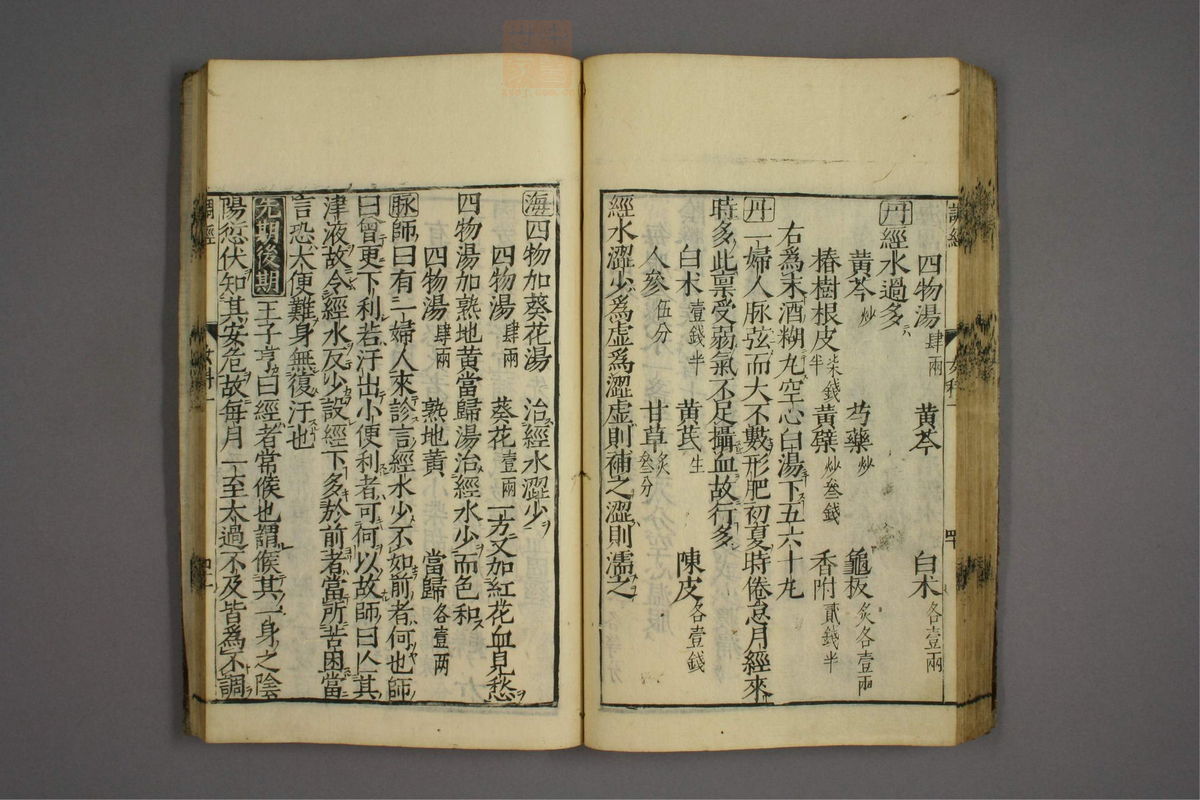 四物湯肆兩 黄芩 白术各壹兩
丹經水過多
黄芩炒 芍藥炒 龜板炙各壹兩
椿樹根皮柒錢半 黄蘗炒叁錢 香附貳錢半
右爲末酒糊丸空心白湯下五六十丸
丹一婦人脉弦而大不數形肥初夏時倦怠月經來
時多此禀受弱氣不足攝血故行多
白术壹錢半 黄芪生 陳皮各壹錢
人參伍分 甘草炙叁分
經水澀少爲虚爲澀虚則補之澀則濡之
海四物加葵花湯 治經水澀少
四物湯肆兩 葵花壹兩 一方又加紅花血見愁
四物湯加熟地黄當歸湯治經水少而色和
四物湯肆兩 熟地黄 當歸各壹兩
脉師曰有一婦人來診言經水少不如前者何也師
曰曾更下利若汗出小便利者可何以故師曰亾其
津液故令經水反少設經下多於前者當所苦困當
言恐大便難身無復汗也
先期後期王子亨曰經者常候也謂候其一身之陰
陽愆伏知其安危故每月一至太過不及皆爲不調
調經
女科一